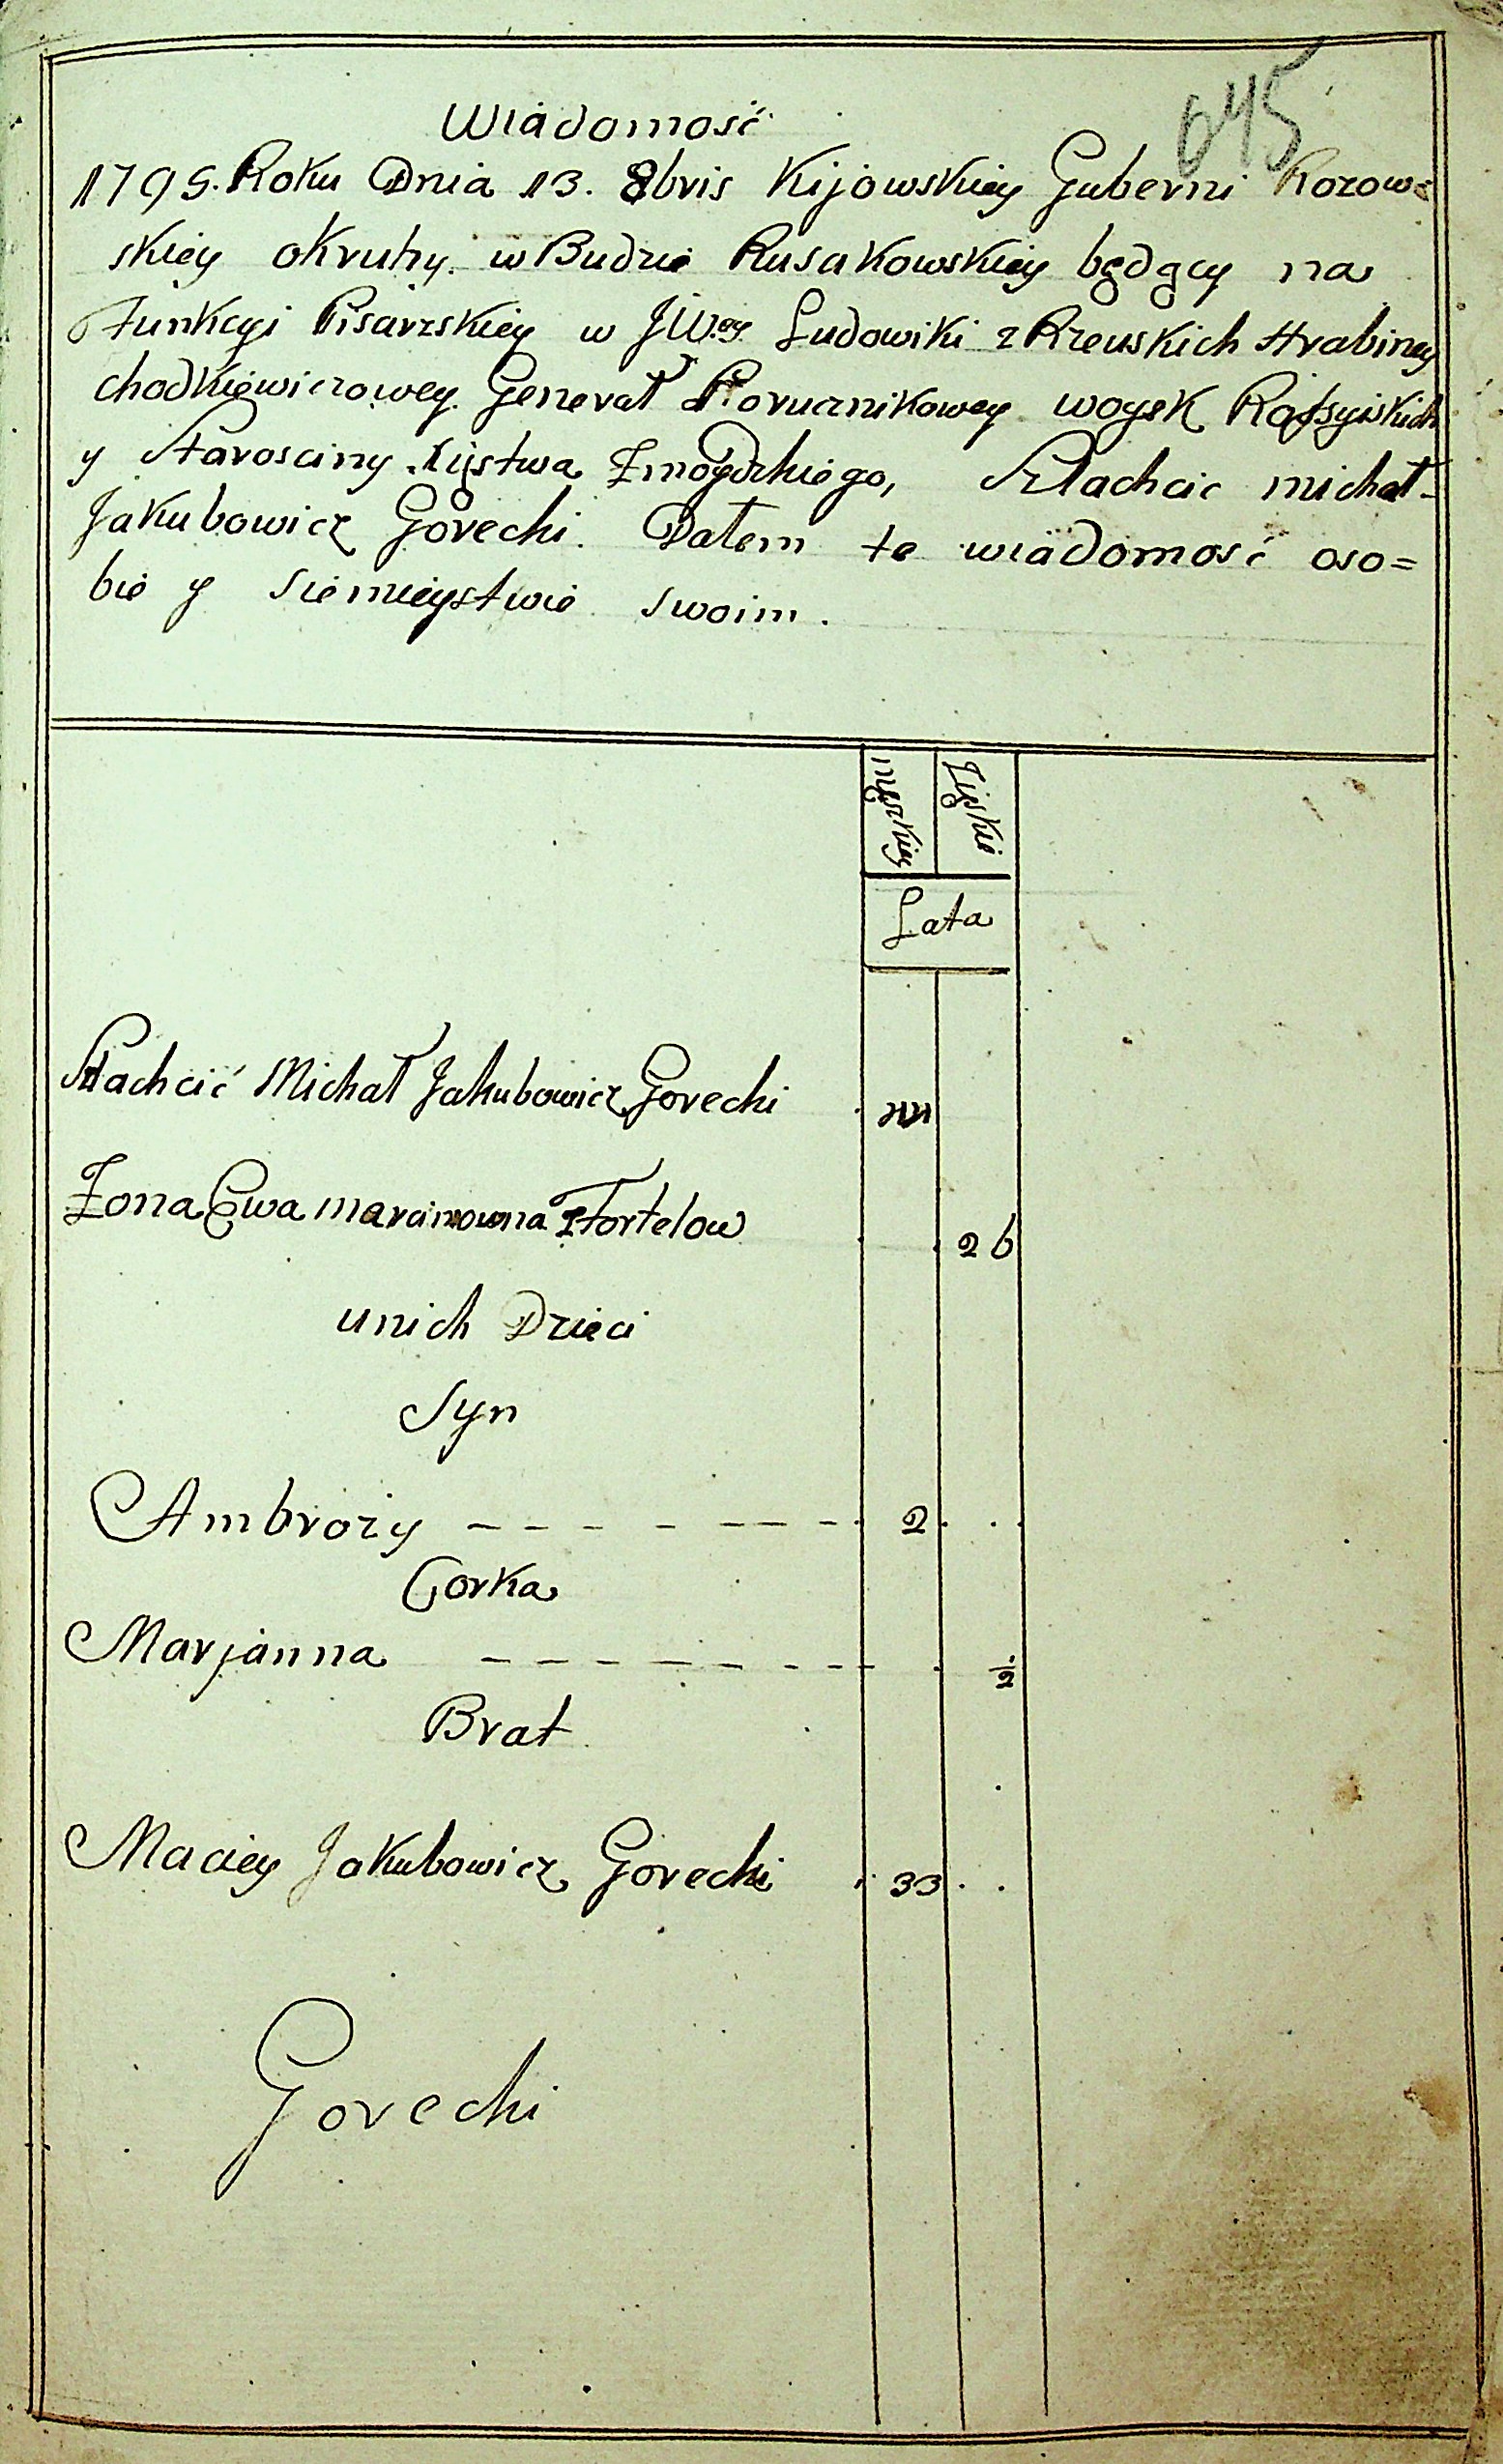 645
Wiadomość
1795. Roku Dnia 13. 8bris Kijowskiey Guberni Rozow=
skiey okruhy. w Budzie Rusakowskiey będący na
Funkcyi Pisarzskiey w JW.ey Ludowiki z Rzeuskich Hrabiney
chodkiewiczowey. Generał Poruznikowey woysk Rossyiskich
y Starosciny Xięstwa Żmoydzkiego, Szlachcic michał
Jakubowicz Gorecki. Dałem te wiadomość oso=
bie y siemieystwie swoim.
męzkiey Żęskie
Lata
Szlachcić Michał Jakubowicz Gorecki
Żona Ewa marcinowna Fortelow 26
unich Dzieci
Syn
Ambroży - - - - - - - - 2
Corka
Marjanna - - - - - - - - - ½
Brat
Maciey Jakubowicz Gorecki 33
Gorecki